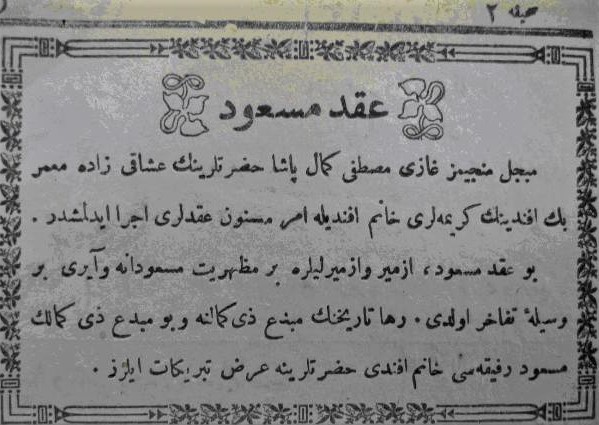 صحیفه ٢
عقد مسعود
مبجل منجیمز غازی مصطفی کمال پاشا حضرتلرینك عشاقی زاده معمر
بك افندینك کریمه‌لری خانم افندیله امر مسنون عقدلری اجرا ایدلمشدر .
بو عقد مسعود ، ازمیر وازمیرلیلره بر مظهریت مسعودانه وآیری بر
وسیلهٔ تفاخر اولدی . رها تاریخنك مبدع ذی کمالنه وبو مبدع ذی کمالك
مسعود رفیقه‌سی خانم افندی حضرتلرینه عرض تبریکات ایلرز .